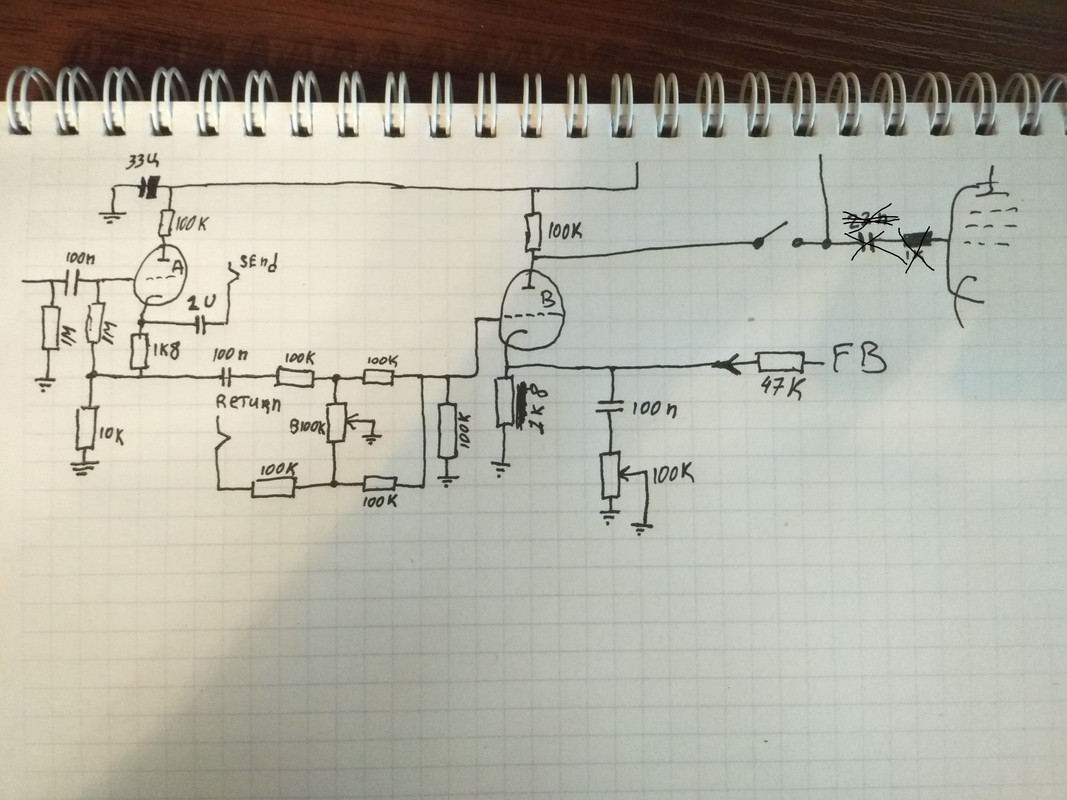 33u
100K
100n
A
Send
2U
1M
1M
1K8
100n
100K
100K
Return
10K
B100K
100K
100K
100K
100K
B
1K8
100n
100K
47K
FB